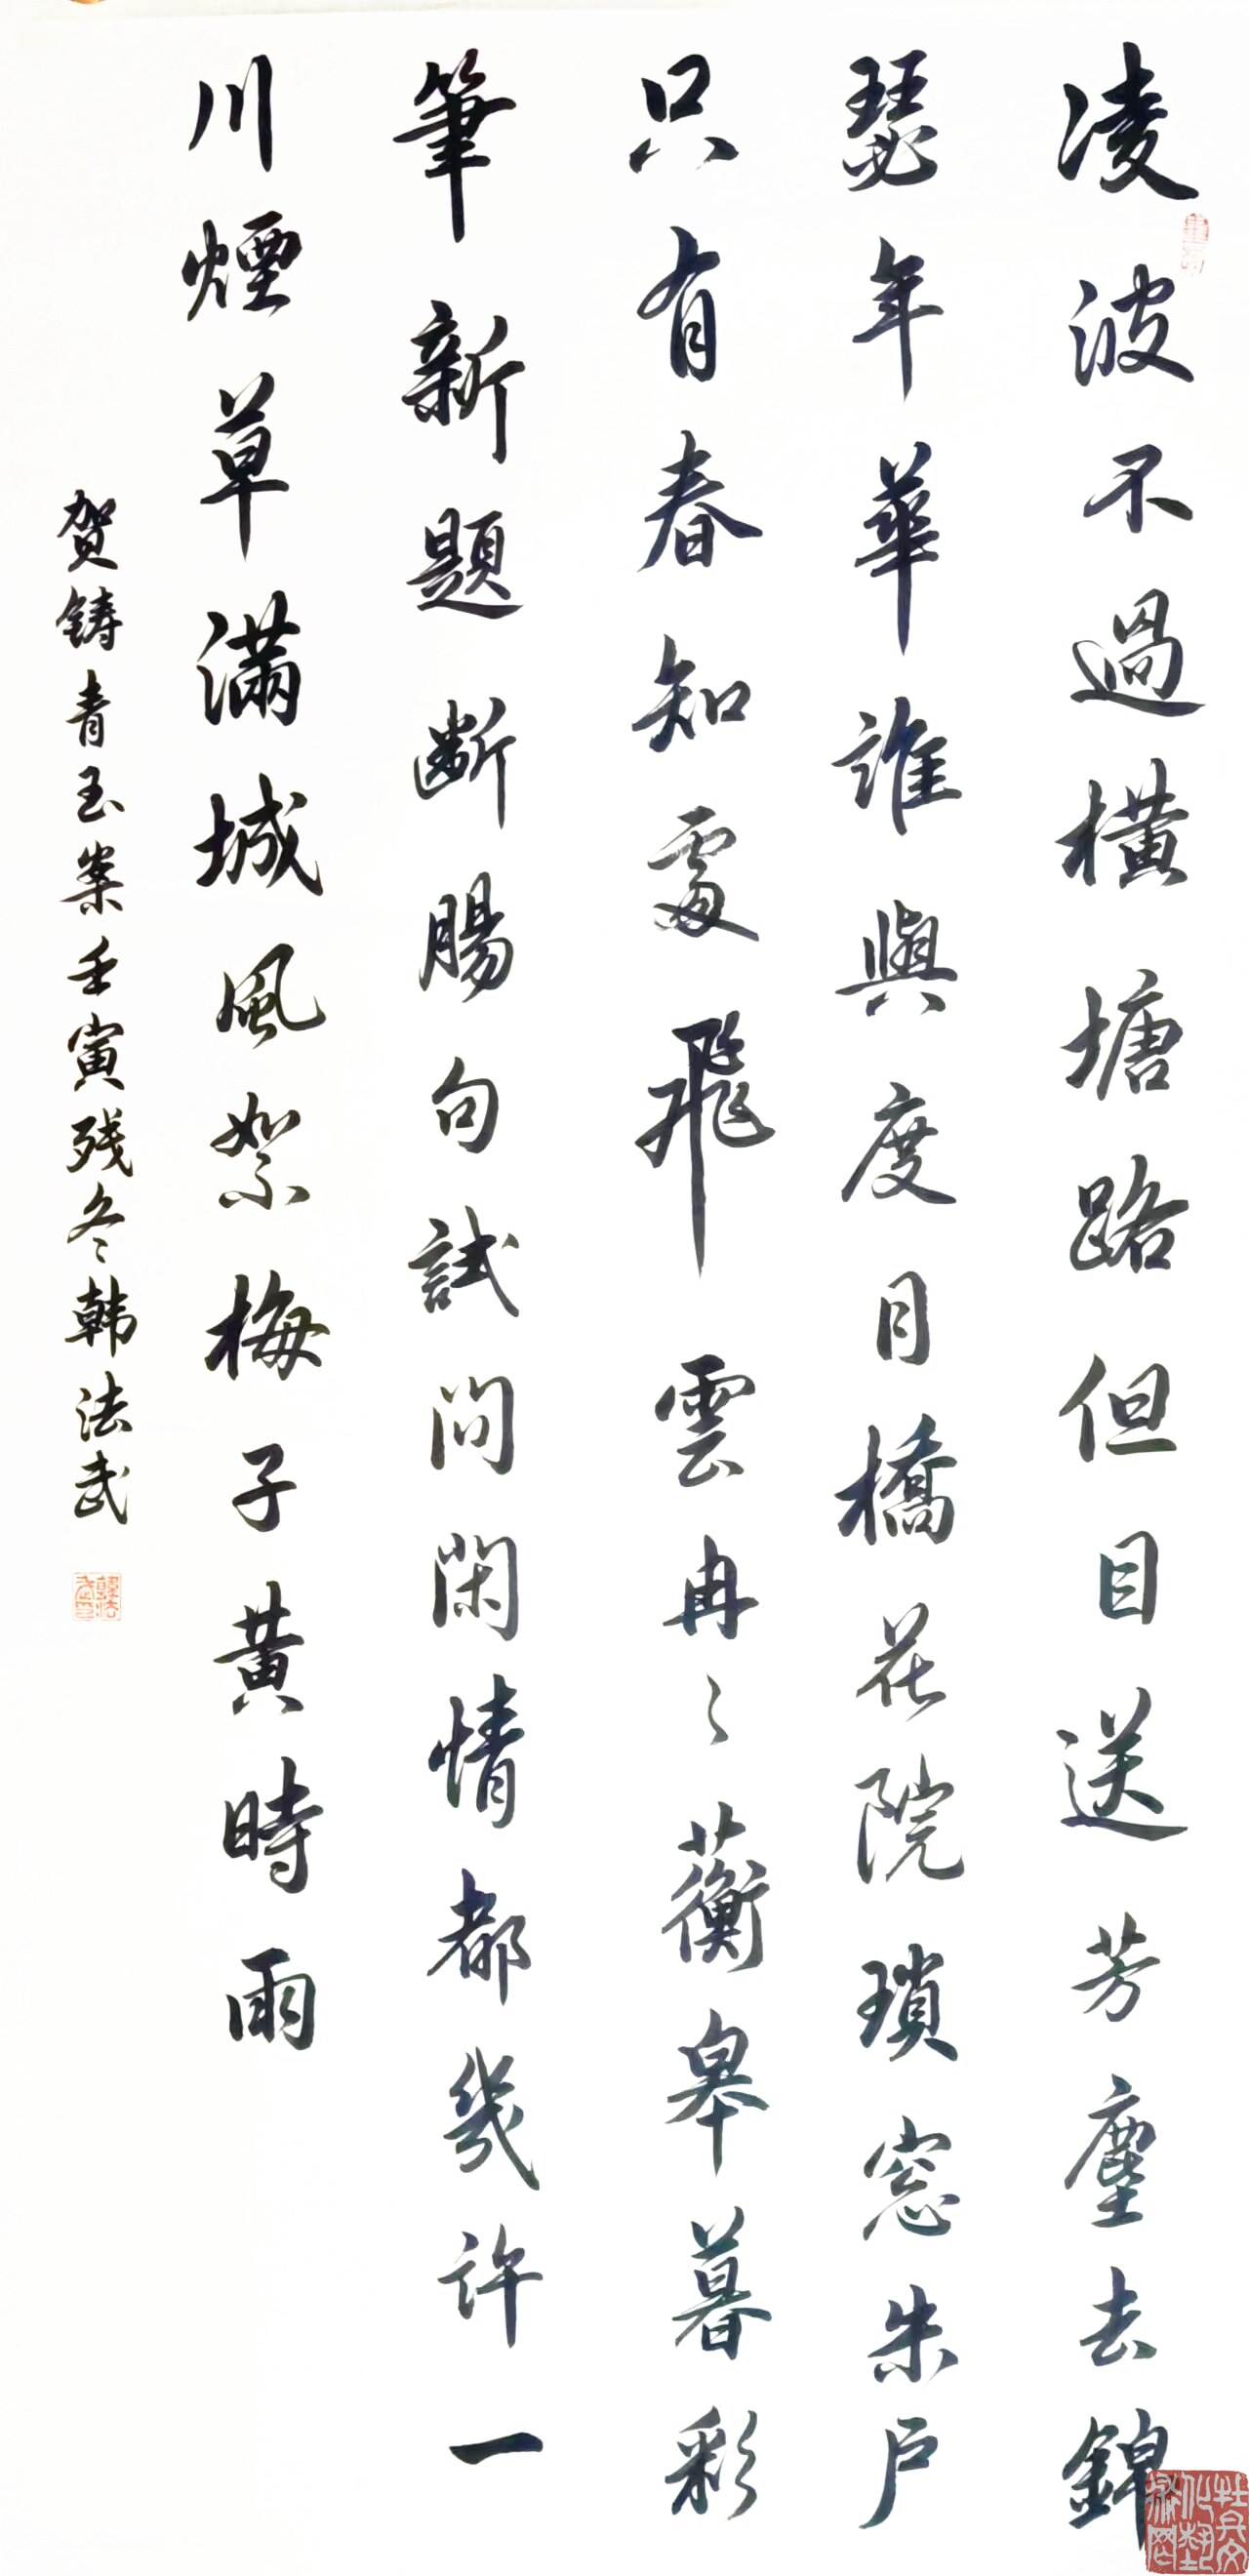 凌波不過橫塘路但目送芳塵去錦
瑟年華誰與度月橋花院瑣窓朱戶
只有春知處飛雲冉〻蘅皋暮彩
筆新題斷腸句試問閑情都幾許一
川煙草滿城風絮梅子黃時雨
贺铸青玉案壬寅残冬韩法武